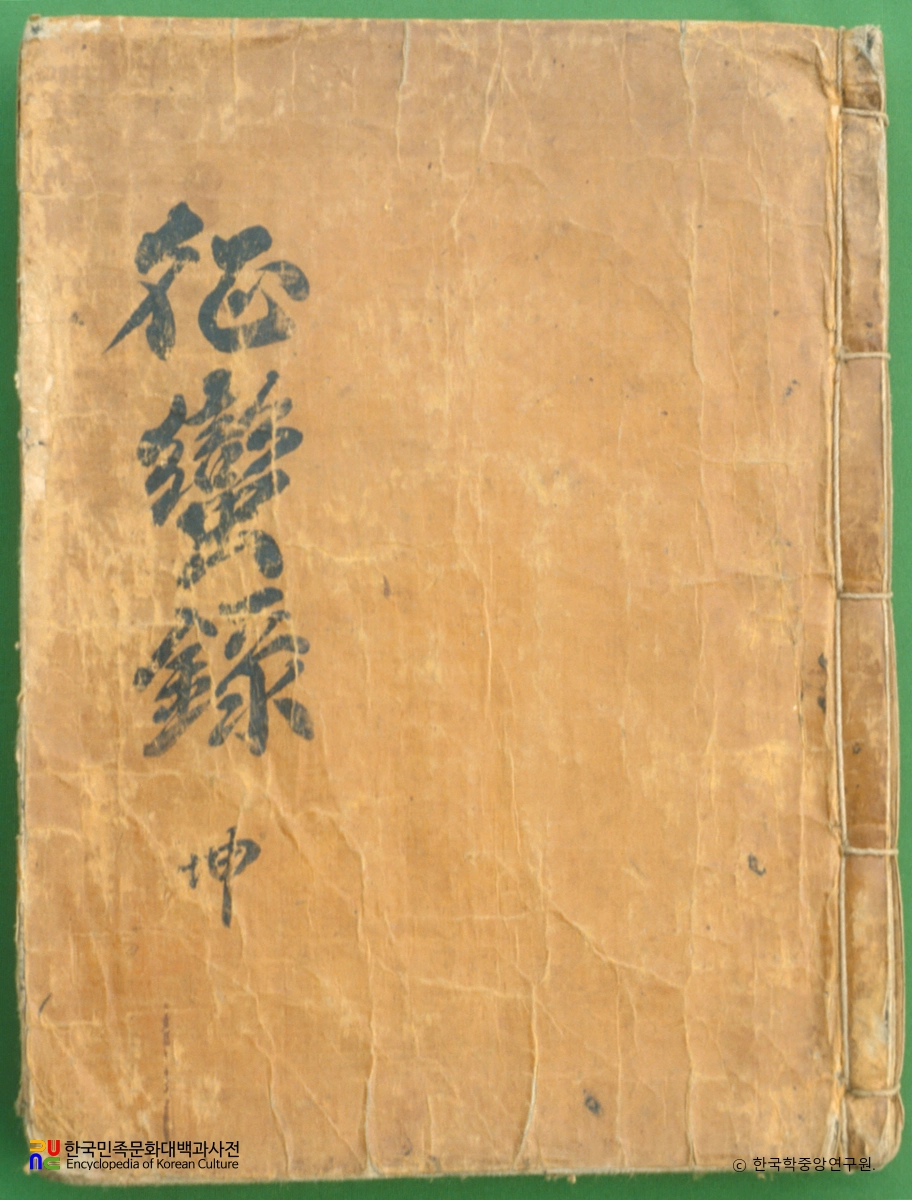 征蠻錄
坤
한국민족문화대백과사전
Encyclopedia of Korean Culture
© 한국학중앙연구원.